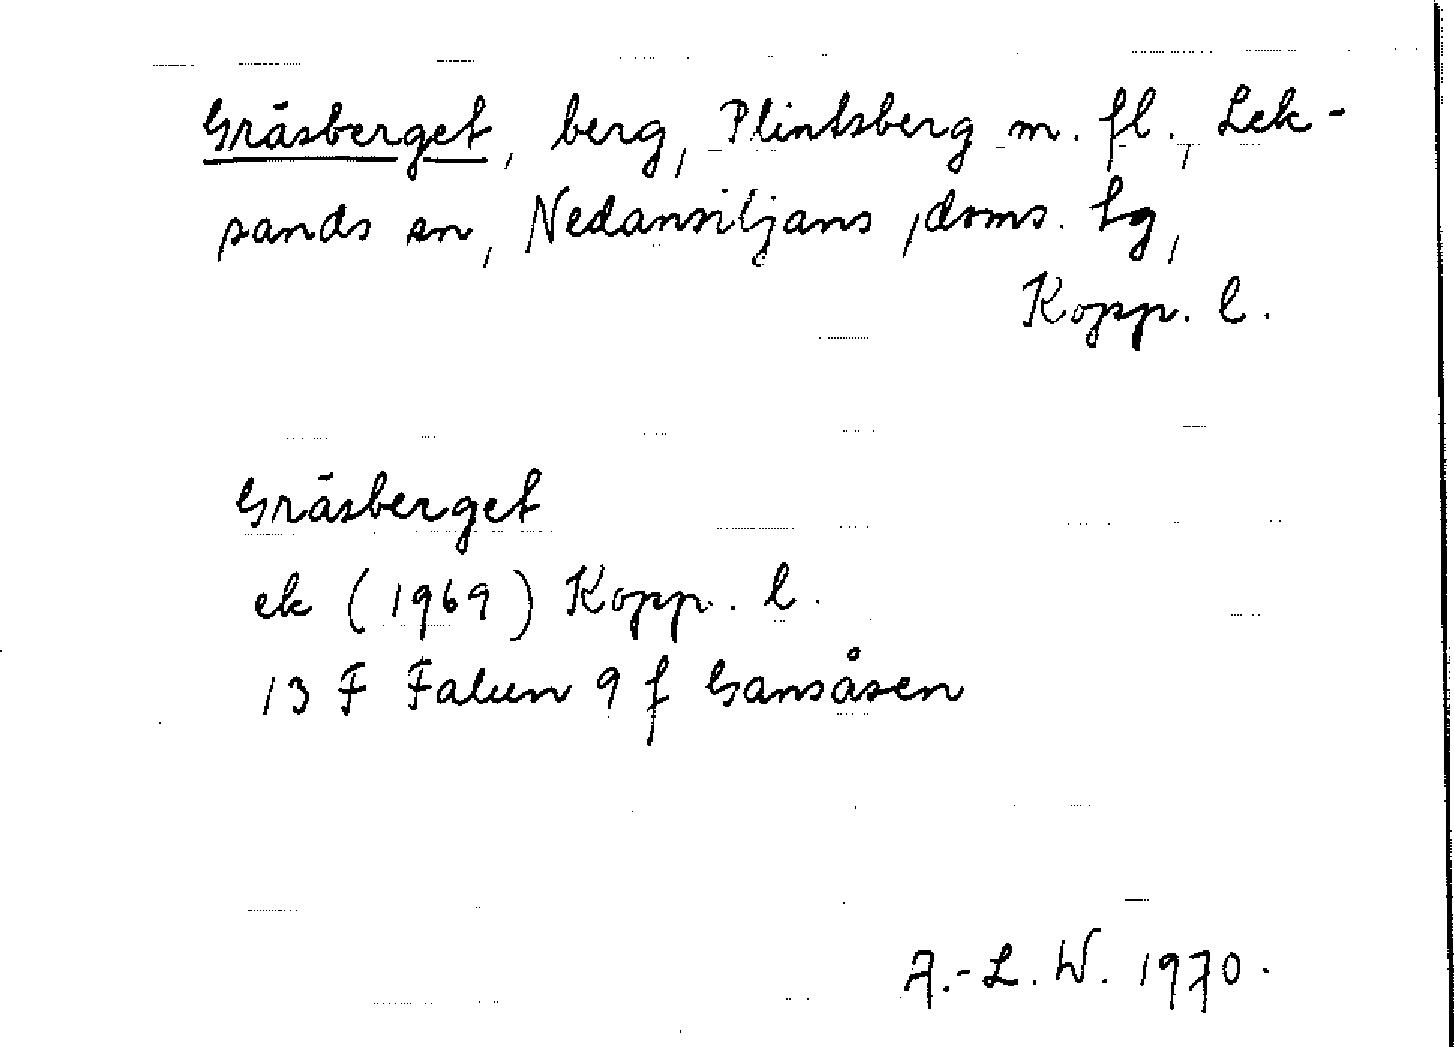 Gräsberget, berg, Plintsberg m. fl., Lek-
sands sn, Nedansiljans doms. tg,
Kopp. l.
Gräsberget
ek (1969) Kopp. l.
13 F Falun 9 f Gansåsen
A.-L. W. 1970.